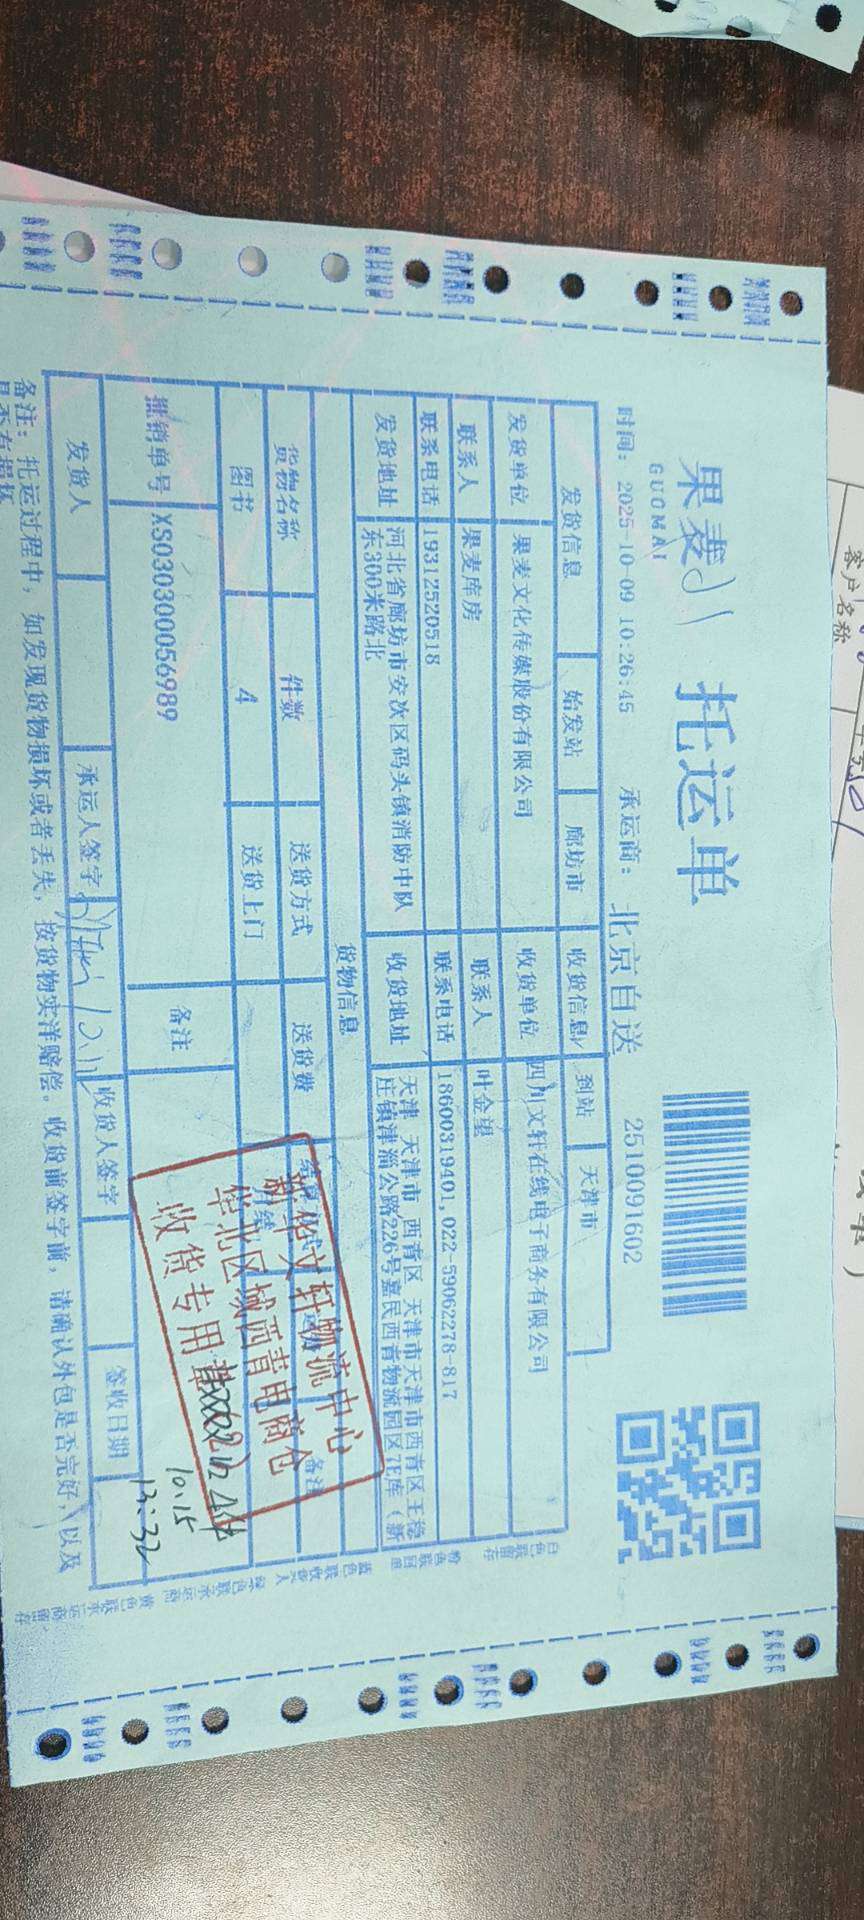 果麦
GUOMAI
托运单
时间: 2025-10-09 10:26:45 承运商: 北京自送 2510091602
发货信息 始发站 廊坊市 收货信息 到站 天津市
发货单位 果麦文化传媒股份有限公司 收货单位 四川文轩在线电子商务有限公司
联系人 果麦库房 联系人 叶金望
联系电话 19312520518 联系电话 18600319401,022-59062278-817
发货地址 河北省廊坊市安次区码头镇消防中队东300米路北 收货地址 天津 天津市 西青区 天津市天津市西青区王稳庄镇津淄公路226号嘉民西青物流园区7E库(新
货物信息
货物名称 件数 送货方式 送货费 备注
图书 4 送货上门
批销单号 XS030300056989 备注
新华文轩物流中心
华北区域西青电商仓
收货专用章
10.15
13:32
发货人 承运人签字 收货人签字 签收日期
备注: 托运过程中, 如发现货物损坏或者丢失, 按货物实洋赔偿。收货前签字前, 请确认外包是否完好, 以及
是否有损坏
白色联留存
粉色联回单
蓝色联收货人
绿色联承运商
黄色联承运商留存
客户名称